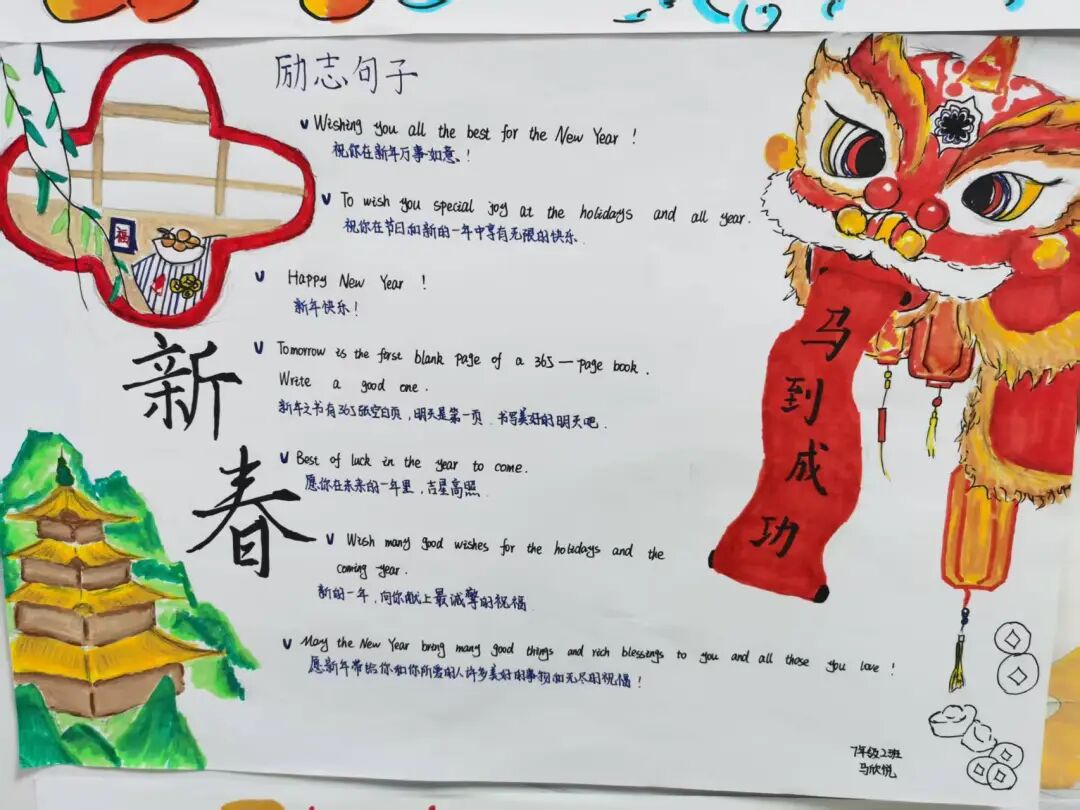 励志句子
Wishing you all the best for the New Year!
祝你在新年万事如意!
To wish you special joy at the holidays and all year.
祝你在节日和新的一年中享有无限的快乐.
Happy New Year!
新年快乐!
Tomorrow is the first blank page of a 365-page book.
Write a good one.
新年之书有365张空白页,明天是第一页.书写美好的明天吧.
Best of luck in the year to come.
愿你在未来的一年里,吉星高照.
Wish many good wishes for the holidays and the
coming year.
新的一年,向你献上最诚挚的祝福.
May the New Year bring many good things and rich blessings to you and all those you love!
愿新年带给你和你所爱的人许多美好的事物和无尽的祝福!
新春
马到成功
福
7年级2班
马欣悦